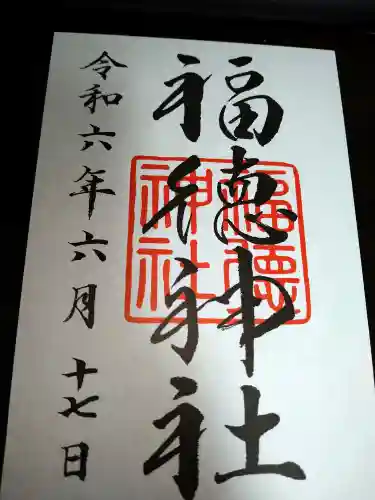 福徳神社
福徳神社
令和六年六月十七日